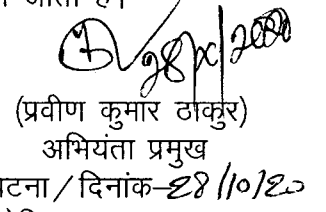 28/x/2020
(प्रवीण कुमार ठाकुर)
अभियंता प्रमुख
टना / दिनांक-28/10/20